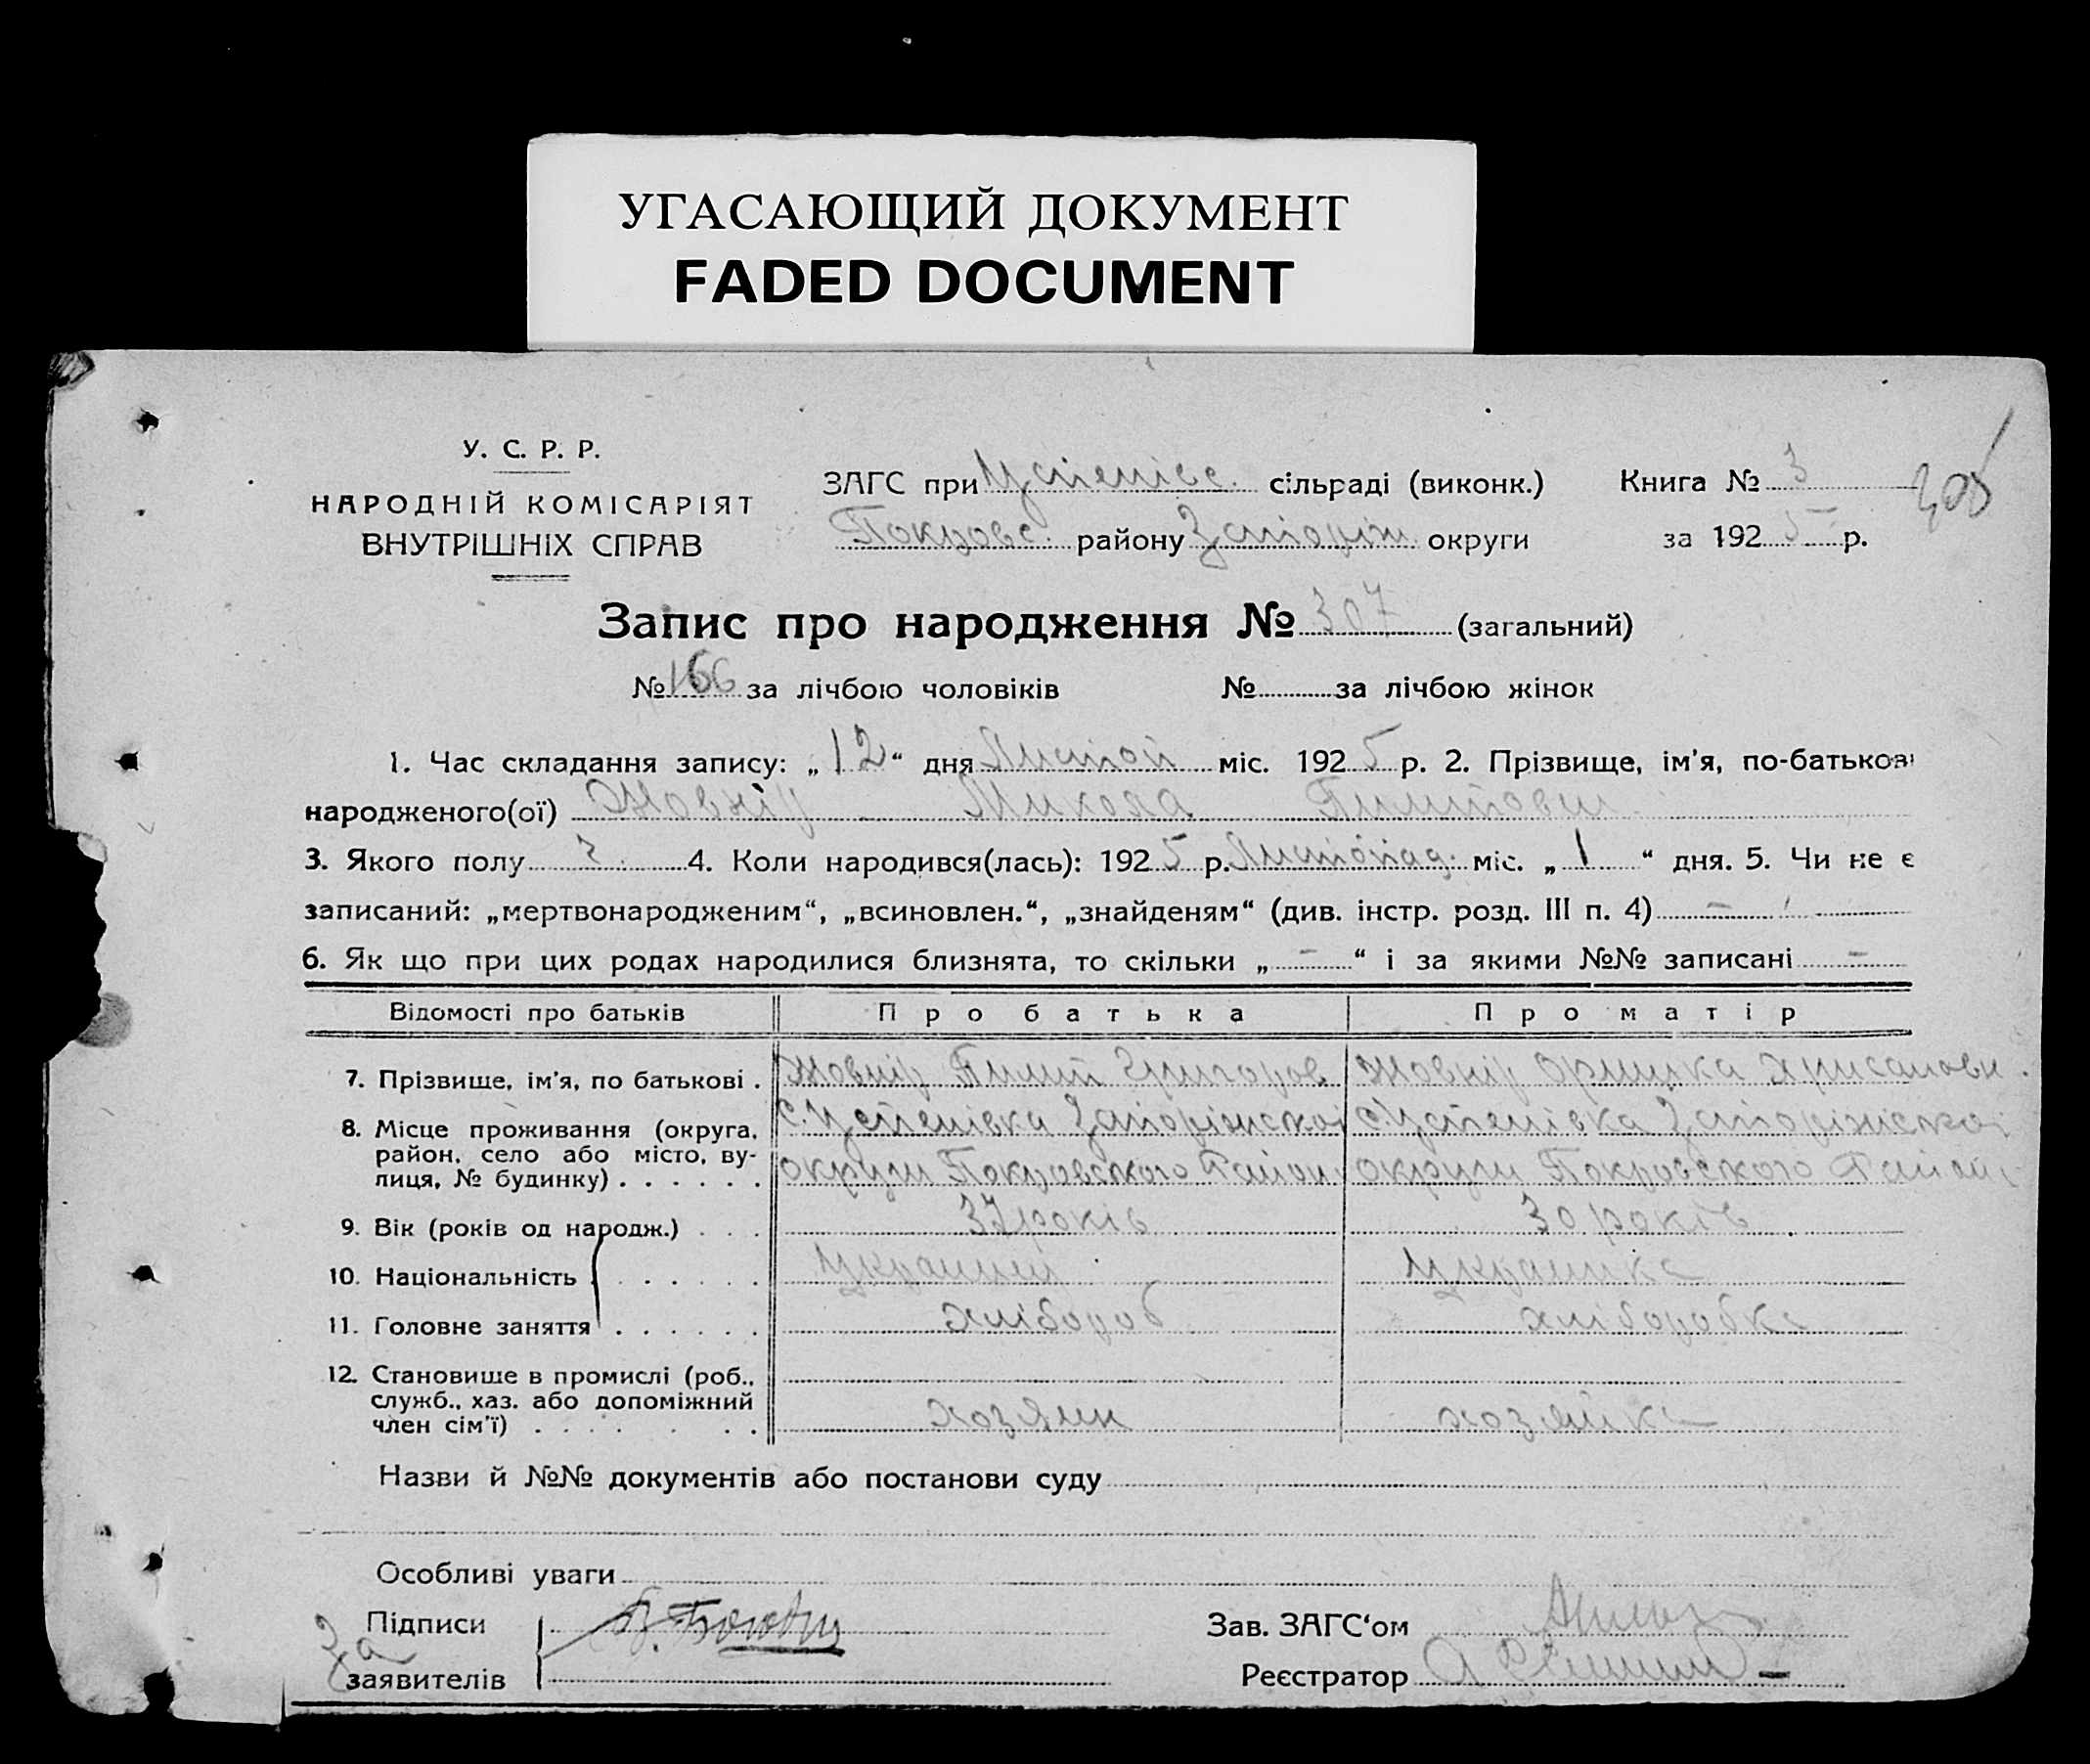 УГАСАЮЩИЙ ДОКУМЕНТ
FADED DOCUMENT
У. С. Р. Р.
НАРОДНІЙ КОМІСАРІЯТ
ВНУТРІШНІХ СПРАВ
ЗАГС при Устенівс. сільраді (виконк.)
Покровс. району Запоріж. округи
Книга № 3
за 1925 р.
Запис про народження № 307 (загальний)
№ 166 за лічбою чоловіків № за лічбою жінок
1. Час складання запису: „12“ дня Листоп міс. 1925 р. 2. Прізвище, ім'я, по-батькові
народженого(ої) Жовнір Микола Пилипович
3. Якого полу ч. 4. Коли народився(лась): 1925 р. Листопад. міс. „1“ дня. 5. Чи не є
записаний: „мертвонародженим“, „всиновлен.“, „знайденям“ (див. інстр. розд. III п. 4) –
6. Як що при цих родах народилися близнята, то скільки „–“ і за якими №№ записані –
Відомості про батьків Про батька Про матір
7. Прізвище, ім'я, по батькові . Жовнір Пилип Григоров Жовнір Оришка Хрисановн.
8. Місце проживання (округа, с. Устенівка Запоріжської с. Устенівка Запоріжської
район, село або місто, ву-
лиця, № будинку) . . . . . . округи Покровського Район округи Покровського Район
9. Вік (років од народж.) . . . 37 років 30 років
10. Національність . . . . . . . Українець Українка
11. Головне заняття . . . . . . хлібороб хліборобка
12. Становище в промислі (роб.,
служб., хаз. або допоміжний
член сім'ї) . . . . . . . хозяин хозяйка
Назви й №№ документів або постанови суду
Особливі уваги
Підписи
За
заявителів
Зав. ЗАГС‘ом
Реєстратор